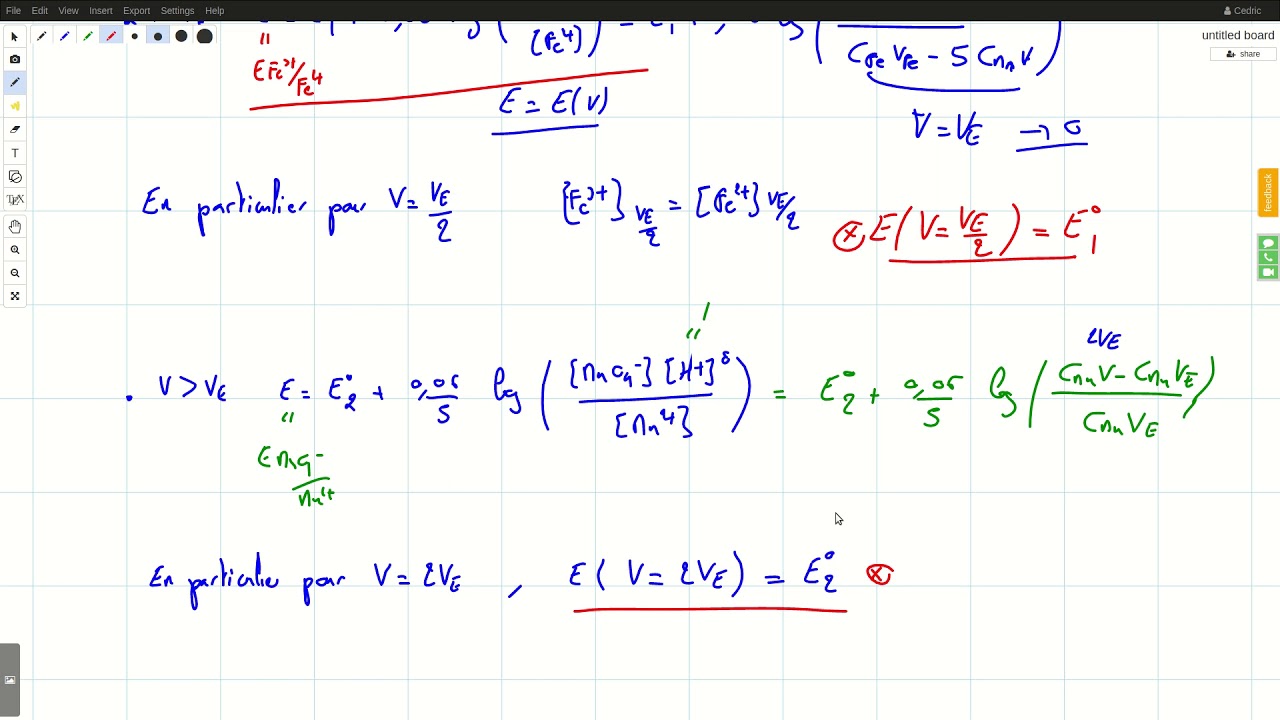 File Edit View Insert Export Settings Help Cedric
untitled board
share
feedback
E Fe³⁺/Fe²⁺
C_Fe V_Fe - 5 C_Mn V
E = E(V)
V = V_E → 0
En particulier pour V = V_E/2 [Fe³⁺]_{V_E/2} = [Fe²⁺]_{V_E/2} ⊗ E(V = V_E/2) = E₁°
1
"
2V_E
. V > V_E E = E₂° + 0,06/5 log([MnO₄⁻][H+]⁸/[Mn²⁺]) = E₂° + 0,06/5 log((C_Mn V - C_Mn V_E)/(C_Mn V_E))
"
E MnO₄⁻/Mn²⁺
En particulier pour V = 2V_E , E(V = 2V_E) = E₂° ⊗